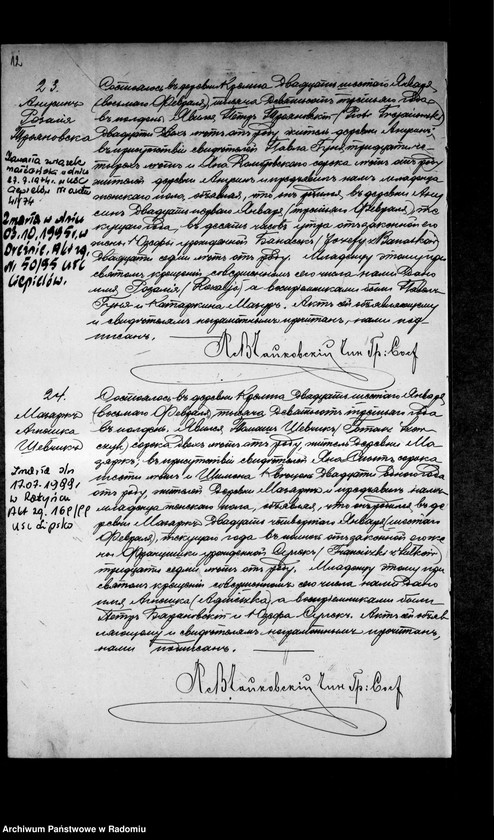 12
23.
Аниринъ
Розалія
Трояновска
zawarła związek
małżeński w dniu
w USC
Ciepielów Nr aktu
41/74
Zmarła w dniu
03.10.1995r. w
Akt zg.
Nr 50/95 USC
Ciepielów.
Состоялось въ деревни Кремпа Двадцать шестаго Января
(восьмаго Февраля) тысяча Девятьсотъ третьяго года
въ полдень. Явился Петръ Трояновскій (Piotr Trojanowski)
Двадцати Двухъ лѣтъ отъ роду житель деревни
въ присутствіи свидѣтелей Павла Гуня тридцати че-
тырехъ лѣтъ и Яна сорока лѣтъ отъ роду
жителей деревни и предъявилъ намъ младенца
женскаго пола, объявляя, что онъ родился въ деревни Ани-
ринъ Двадцать перваго Января (третьяго Февраля) те-
кущаго года, въ десять часовъ отъ законной его
жены Юзефы урожденной (Józefy z
Двадцати седми лѣтъ отъ роду. Младенцу этому при
святомъ крещеніи совершенномъ сего числа нами Дано
имя Розалія (Rozalja) а воспріемниками были Павелъ
Гуня и Катаржина Мазуръ. Актъ сей объявляющему
и свидѣтелямъ неграмотнымъ прочтенъ, нами под-
писанъ.
Чайковскій Чин. Гр: Сост
24.
Мазаржъ
Агнешка
Шевчикъ
Zmarła dn
17.07.1999r
w
Akt zg. 168/99
USC Lipsko
Состоялось въ деревни Кремпа Двадцать шестаго Января
(восьмаго Февраля) тысяча Девятьсотъ третьяго года
въ полдень. Явился Шевчикъ
сорока Двухъ лѣтъ отъ роду, житель Деревни Ма-
заржъ, въ присутствіи свидѣтелей Яна сорока
шести лѣтъ и Шимона Двадцати года
отъ роду, жителей Деревни Мазаржъ и предъявилъ намъ
младенца женскаго пола, объявляя, что онъ родился въ де-
ревни Мазаржъ Двадцать четвертаго Января (шестаго
Февраля) текущаго года въ отъ законной его же-
ны Францишки урожденной (Franciszki z
тридцати седми лѣтъ отъ роду. Младенцу этому при
святомъ крещеніи совершенномъ сего числа нами Дано
имя Агнешка (Agnieszka) а воспріемниками были
Петръ и Юзефа Актъ сей объяв-
ляющему и свидѣтелямъ неграмотнымъ прочтенъ,
нами подписанъ.
Чайковскій Чин. Гр: Сост
Archiwum Państwowe w Radomiu